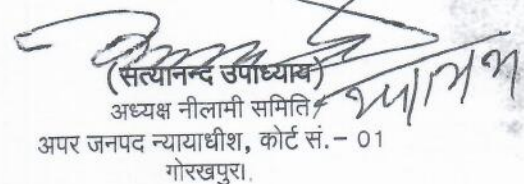 (सत्यानन्द उपाध्याय)
अध्यक्ष नीलामी समिति
अपर जनपद न्यायाधीश, कोर्ट सं.– 01
गोरखपुर।